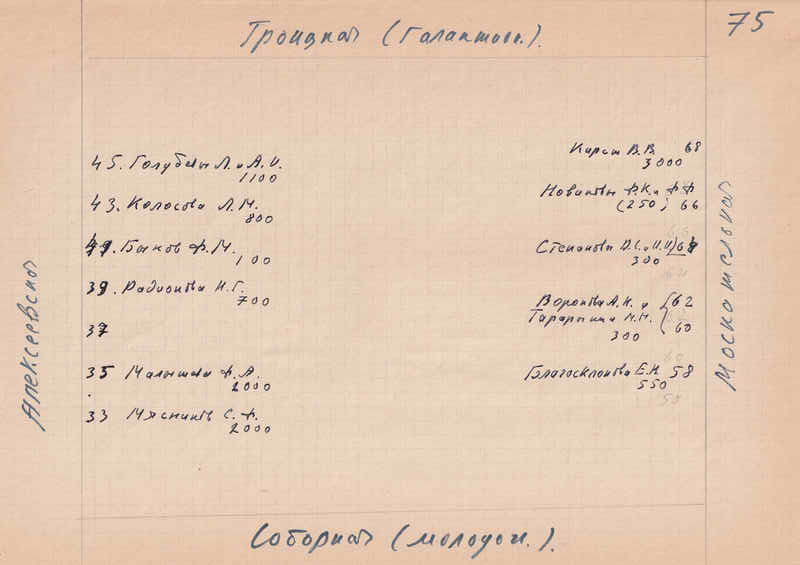 75
Троицкая (Галактион.).
Алексеевская
45. Голубевы Л. и А. И.
1100
43. Колосова Л. М.
800
41. Быков Ф. М.
100
39. Радионова Н. Г.
700
37
35 Малышева Ф. А.
2000
33 Мясников С. Ф.
2000
Карст В. В. 68
3000
Новиковы Ф. К. и Ф Ф
(250) 66
Степановы и И. И) 64
300
Воронова А. Н. и 62
Тарарыкина М. Н. 60
300
Благосклонова Е. Н 58
550
Москательная
Соборная (молодог.).